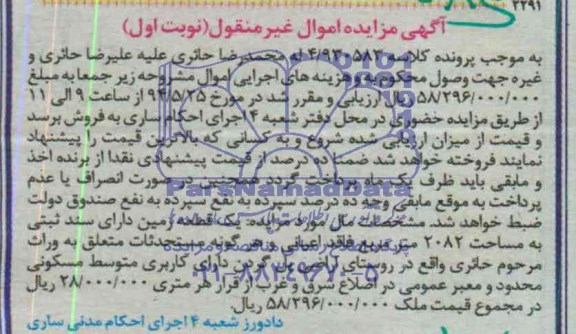 ۳۳۹۱
آگهی مزایده اموال غیر منقول(نوبت اول)
به موجب پرونده کلاسه ۴/۹۳۰۵۸۳ له محمدرضا حائری علیه علیرضا حائری و
غیره جهت وصول محکوم به و هزینه های اجرایی اموال مشروحه زیر جمعا به مبلغ
۵۸/۲۹۶/۰۰۰/۰۰۰ ریال ارزیابی و مقرر شد در مورخ ۹۴/۵/۲۵ از ساعت ۹ الی ۱۱
از طریق مزایده حضوری در محل دفتر شعبه ۴ اجرای احکام ساری به فروش برسد
و قیمت از میزان ارزیابی شده شروع و به کسانی که بالاترین قیمت را پیشنهاد
نمایند فروخته خواهد شد ضمنا ده درصد از قیمت پیشنهادی نقدا از برنده اخذ
و مابقی باید ظرف یک ماه پرداخت گردد همچنین در صورت انصراف یا عدم
ParsNamadData
پرداخت به موقع مابقی وجه ده درصد سپرده به نفع سپرده به نفع صندوق دولت
ضبط خواهد شد. مشخصات مال مورد مزایده: یک قطعه زمین دارای سند ثبتی
به مساحت ۲۰۸۲ متر مربع فاقد اعیانی و هر گونه مستحدثات متعلق به وراث
مرحوم حائری واقع در روستای دارای کاربری متوسط مسکونی
۰۲۱-۸۸۳۴۹۶۷۰-۵
محدود و معبر عمومی در اضلاع شرق و غرب از قرار هر متری ۲۸/۰۰۰/۰۰۰ ریال
در مجموع قیمت ملک ۵۸/۲۹۶/۰۰۰/۰۰۰ ریال.
دادورز شعبه ۴ اجرای احکام مدنی ساری